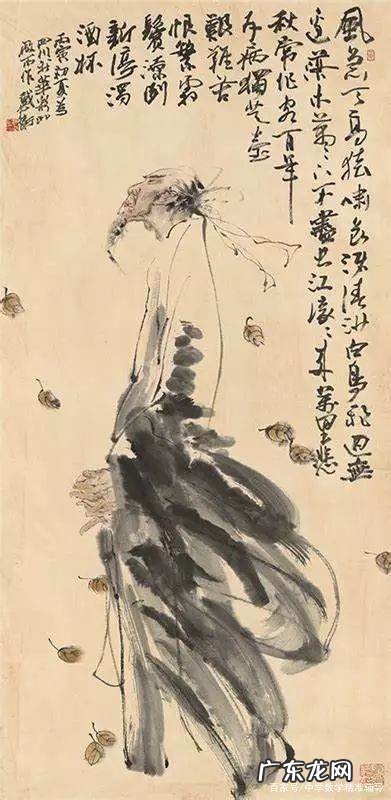 風急天高猿嘯哀渚清沙白鳥飛迴無
邊落木蕭々下不盡長江滾々來萬里悲
秋常作客百年
多病獨登臺
艱難苦
恨繁霜
鬢潦倒
新停濁
酒杯
丙寅初夏為
四川
而作戴衛
百家号/中学数学精准辅导
广东龙网